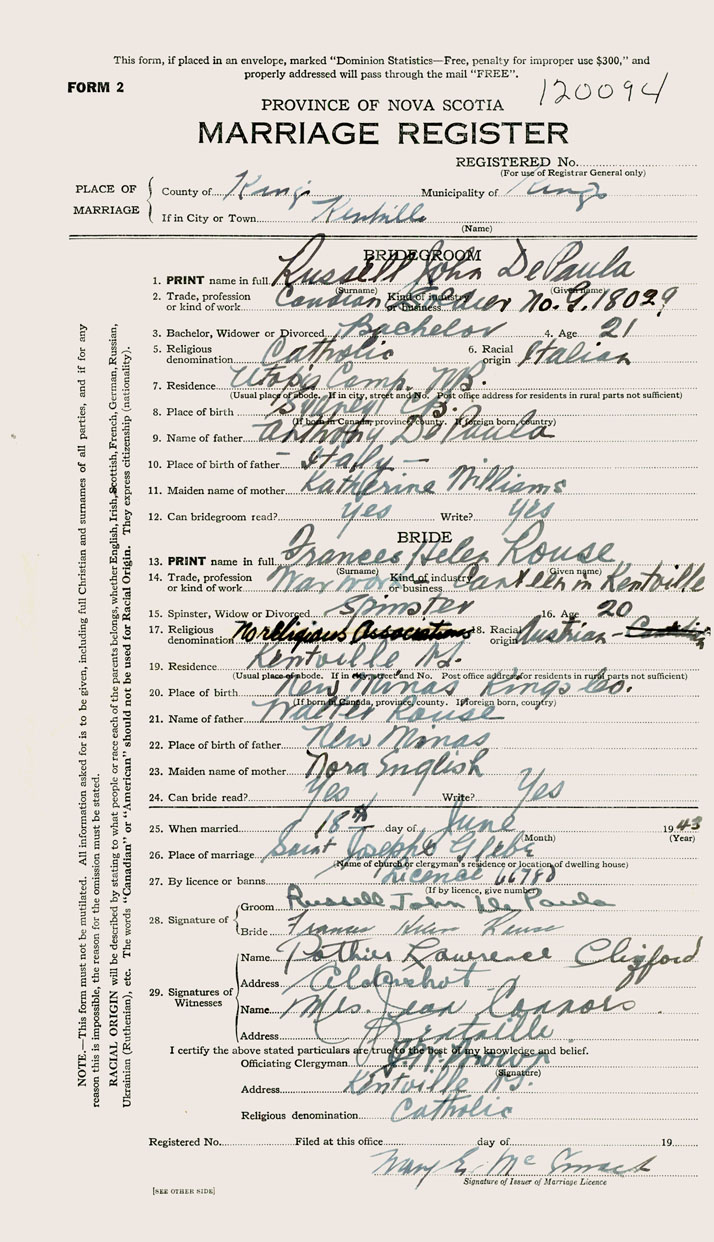 This form, if placed in an envelope, marked "Dominion Statistics—Free, penalty for improper use $300," and
properly addressed will pass through the mail "FREE".
FORM 2
120094
PROVINCE OF NOVA SCOTIA
MARRIAGE REGISTER
REGISTERED No.
(For use of Registrar General only)
PLACE OF MARRIAGE
County of Kings Municipality of Kings
If in City or Town Kentville
(Name)
BRIDEGROOM
1. PRINT name in full Russell John DePaula
(Surname) (Given name)
2. Trade, profession or kind of work Canadian Soldier No. G.18029 Kind of industry or business
3. Bachelor, Widower or Divorced Bachelor 4. Age 21
5. Religious denomination Catholic 6. Racial origin Italian
7. Residence Utopia Camp. N.B.
(Usual place of abode. If in city, street and No. Post office address for residents in rural parts not sufficient)
8. Place of birth Sydney C.B.
(If born in Canada, province, county. If foreign born, country)
9. Name of father Anthony DePaula
10. Place of birth of father - Italy -
11. Maiden name of mother Katherine Williams
12. Can bridegroom read? Yes Write? Yes
BRIDE
13. PRINT name in full Frances Helen Rouse
(Surname) (Given name)
14. Trade, profession or kind of work War work Kind of industry or business Canteen in Kentville
15. Spinster, Widow or Divorced Spinster 16. Age 20
17. Religious denomination No religious Association 18. Racial origin Austrian -
19. Residence Kentville N.S.
(Usual place of abode. If in city, street and No. Post office address for residents in rural parts not sufficient)
20. Place of birth New Minas Kings Co.
(If born in Canada, province, county. If foreign born, country)
21. Name of father Walter Rouse
22. Place of birth of father New Minas
23. Maiden name of mother Nora English
24. Can bride read? Yes Write? Yes
25. When married 18th day of June 1943
(Month) (Year)
26. Place of marriage Saint Joseph's Glebe
(Name of church or clergyman's residence or location of dwelling house)
27. By licence or banns Licence 66780
(If by licence, give number)
28. Signature of
Groom Russell John De Paula
Bride Frances Helen Rouse
29. Signatures of Witnesses
Name Pothier Lawrence Clifford
Address Aldershot
Name Mrs. Jean Connors
Address Kentville
I certify the above stated particulars are true to the best of my knowledge and belief.
Officiating Clergyman J. H. Brown
(Signature)
Address Kentville N.S.
Religious denomination Catholic
Registered No. Filed at this office day of 19
Mary E. Mc
Signature of Issuer of Marriage Licence
[SEE OTHER SIDE]
NOTE.—This form must not be mutilated. All information asked for is to be given, including full Christian and surnames of all parties, and if for any
reason this is impossible, the reason for the omission must be stated.
RACIAL ORIGIN will be described by stating to what people or race each of the parents belongs, whether English, Irish, Scottish, French, German, Russian,
Ukrainian (Ruthenian), etc. The words "Canadian" or "American" should not be used for Racial Origin. They express citizenship (nationality).